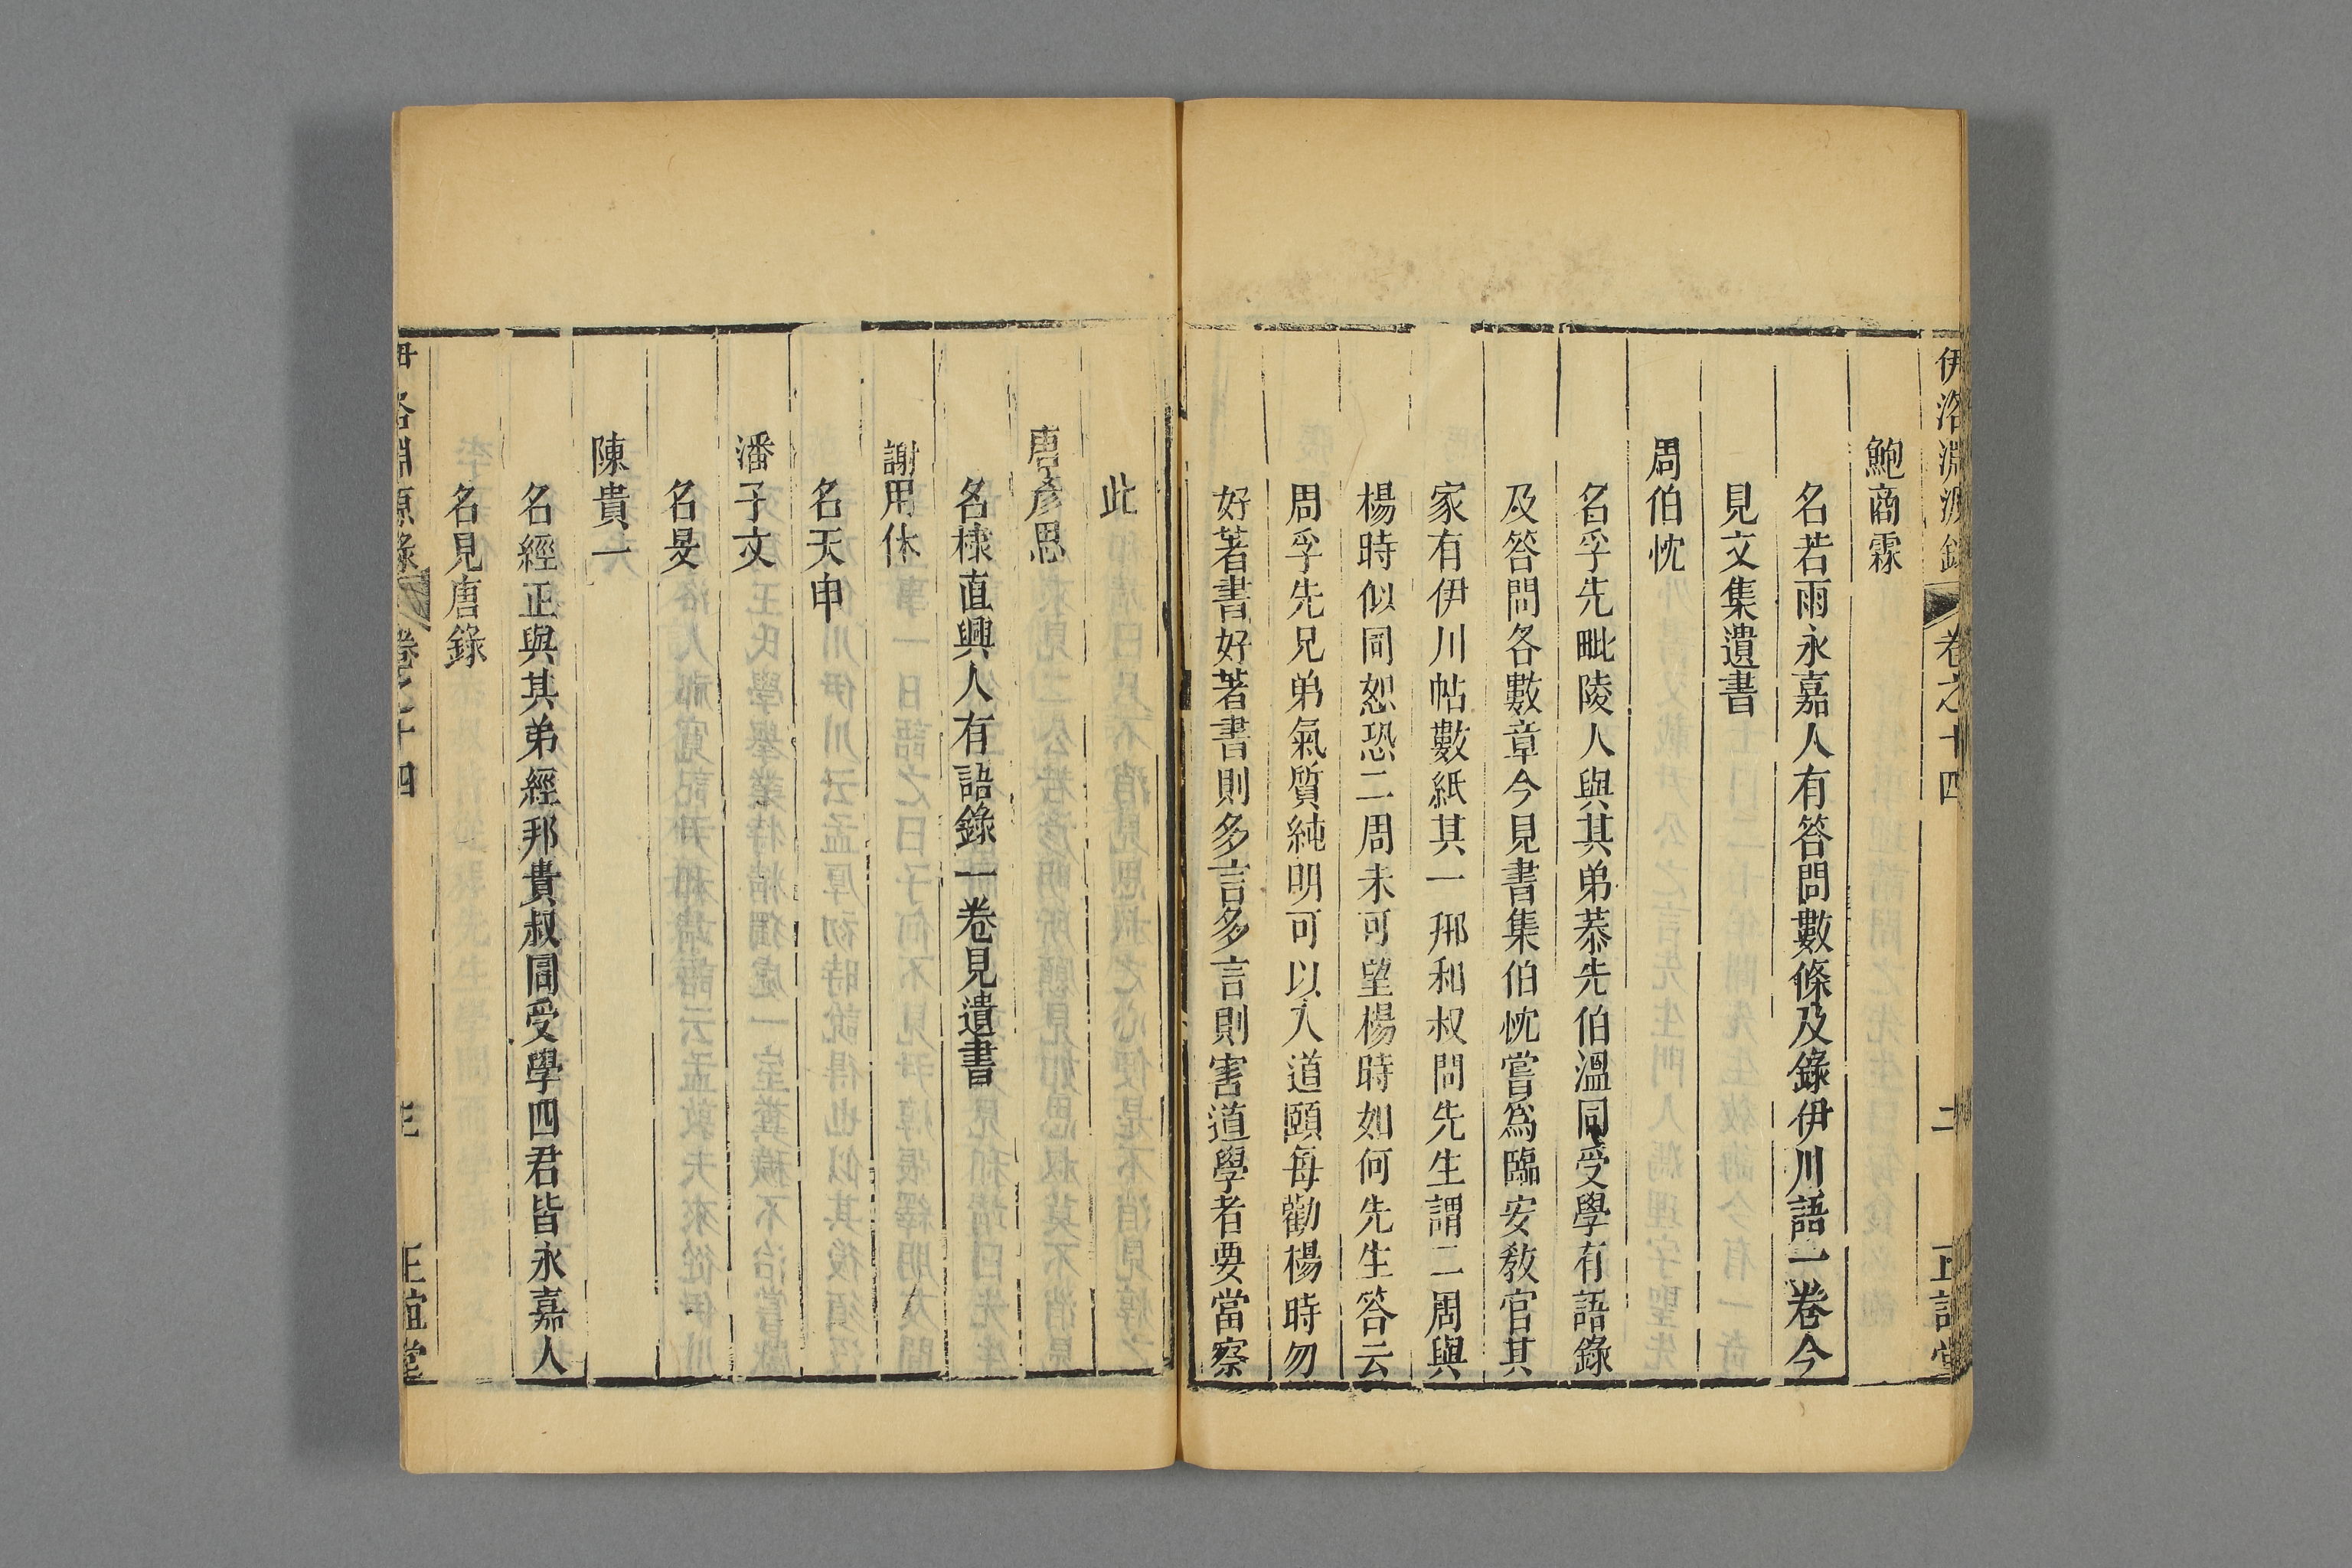 伊洛淵源錄 卷之十四 二 正誼堂
鮑商霖
名若雨永嘉人有答問數條及錄伊川語一卷今
見文集遺書
周伯忱
名孚先毗陵人與其弟恭先伯溫同受學有語錄
及答問各數章今見書集伯忱嘗為臨安教官其
家有伊川帖數紙其一邢和叔問先生謂二周與
楊時似同恕恐二周未可望楊時如何先生答云
周孚先兄弟氣質純明可以入道頤每勸楊時勿
好著書好著書則多言多言則害道學者要當察
此
唐彥思
名棣直興人有語錄一卷見遺書
謝用休
名天申
潘子文
名旻
陳貴一
名經正與其弟經邦貴叔同受學四君皆永嘉人
名見唐錄
洛淵源錄 卷之十四 正誼堂